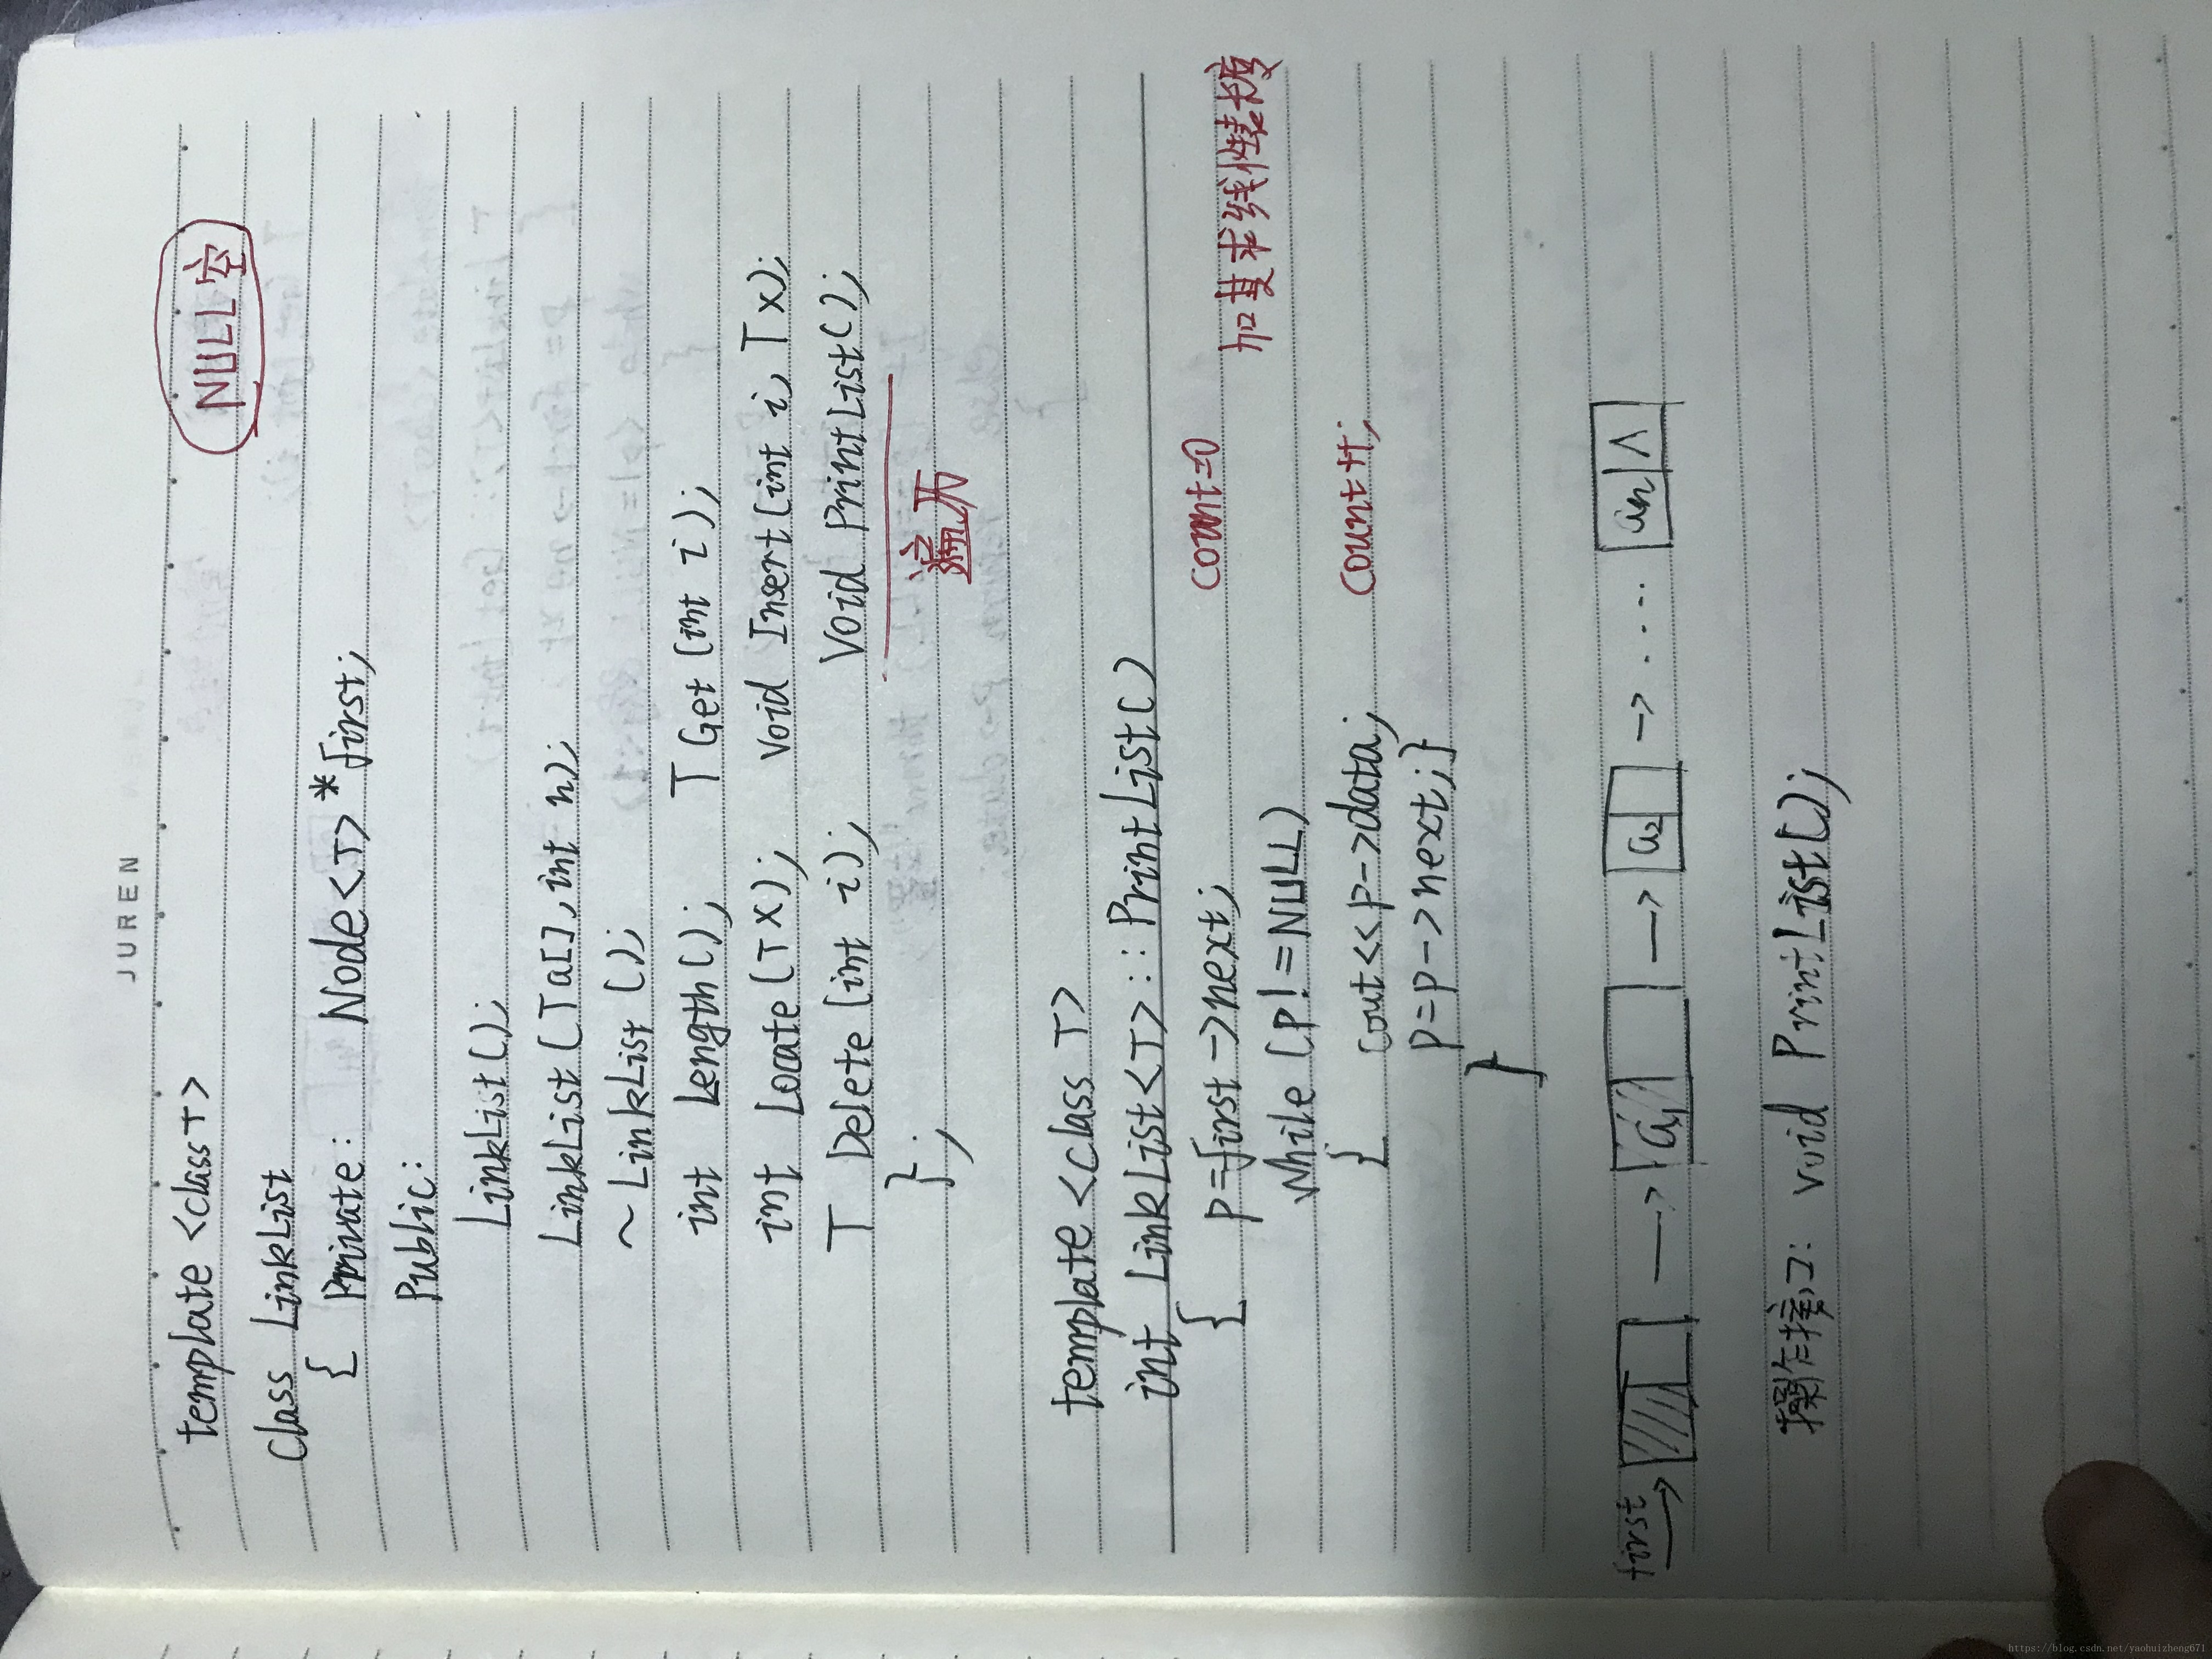 JUREN
template <class T>
NULL空
Class LinkList
{ Private: Node<T> *first;
Public:
LinkList();
LinkList(T a[], int n);
~LinkList();
int Length(); T Get(int i);
int Locate(T x); Void Insert(int i, T x);
T Delete(int i); Void PrintList();
};
遍历
template <class T>
int LinkList<T>::PrintList()
{ P=first->next; count=0 加其求线性表长度
While (P!=NULL)
{ cout<<P->data; count++;
P=P->next;}
}
first a1 a2 .... an ∧
操作接口: void PrintList();
https://blog.csdn.net/yaohuizheng671